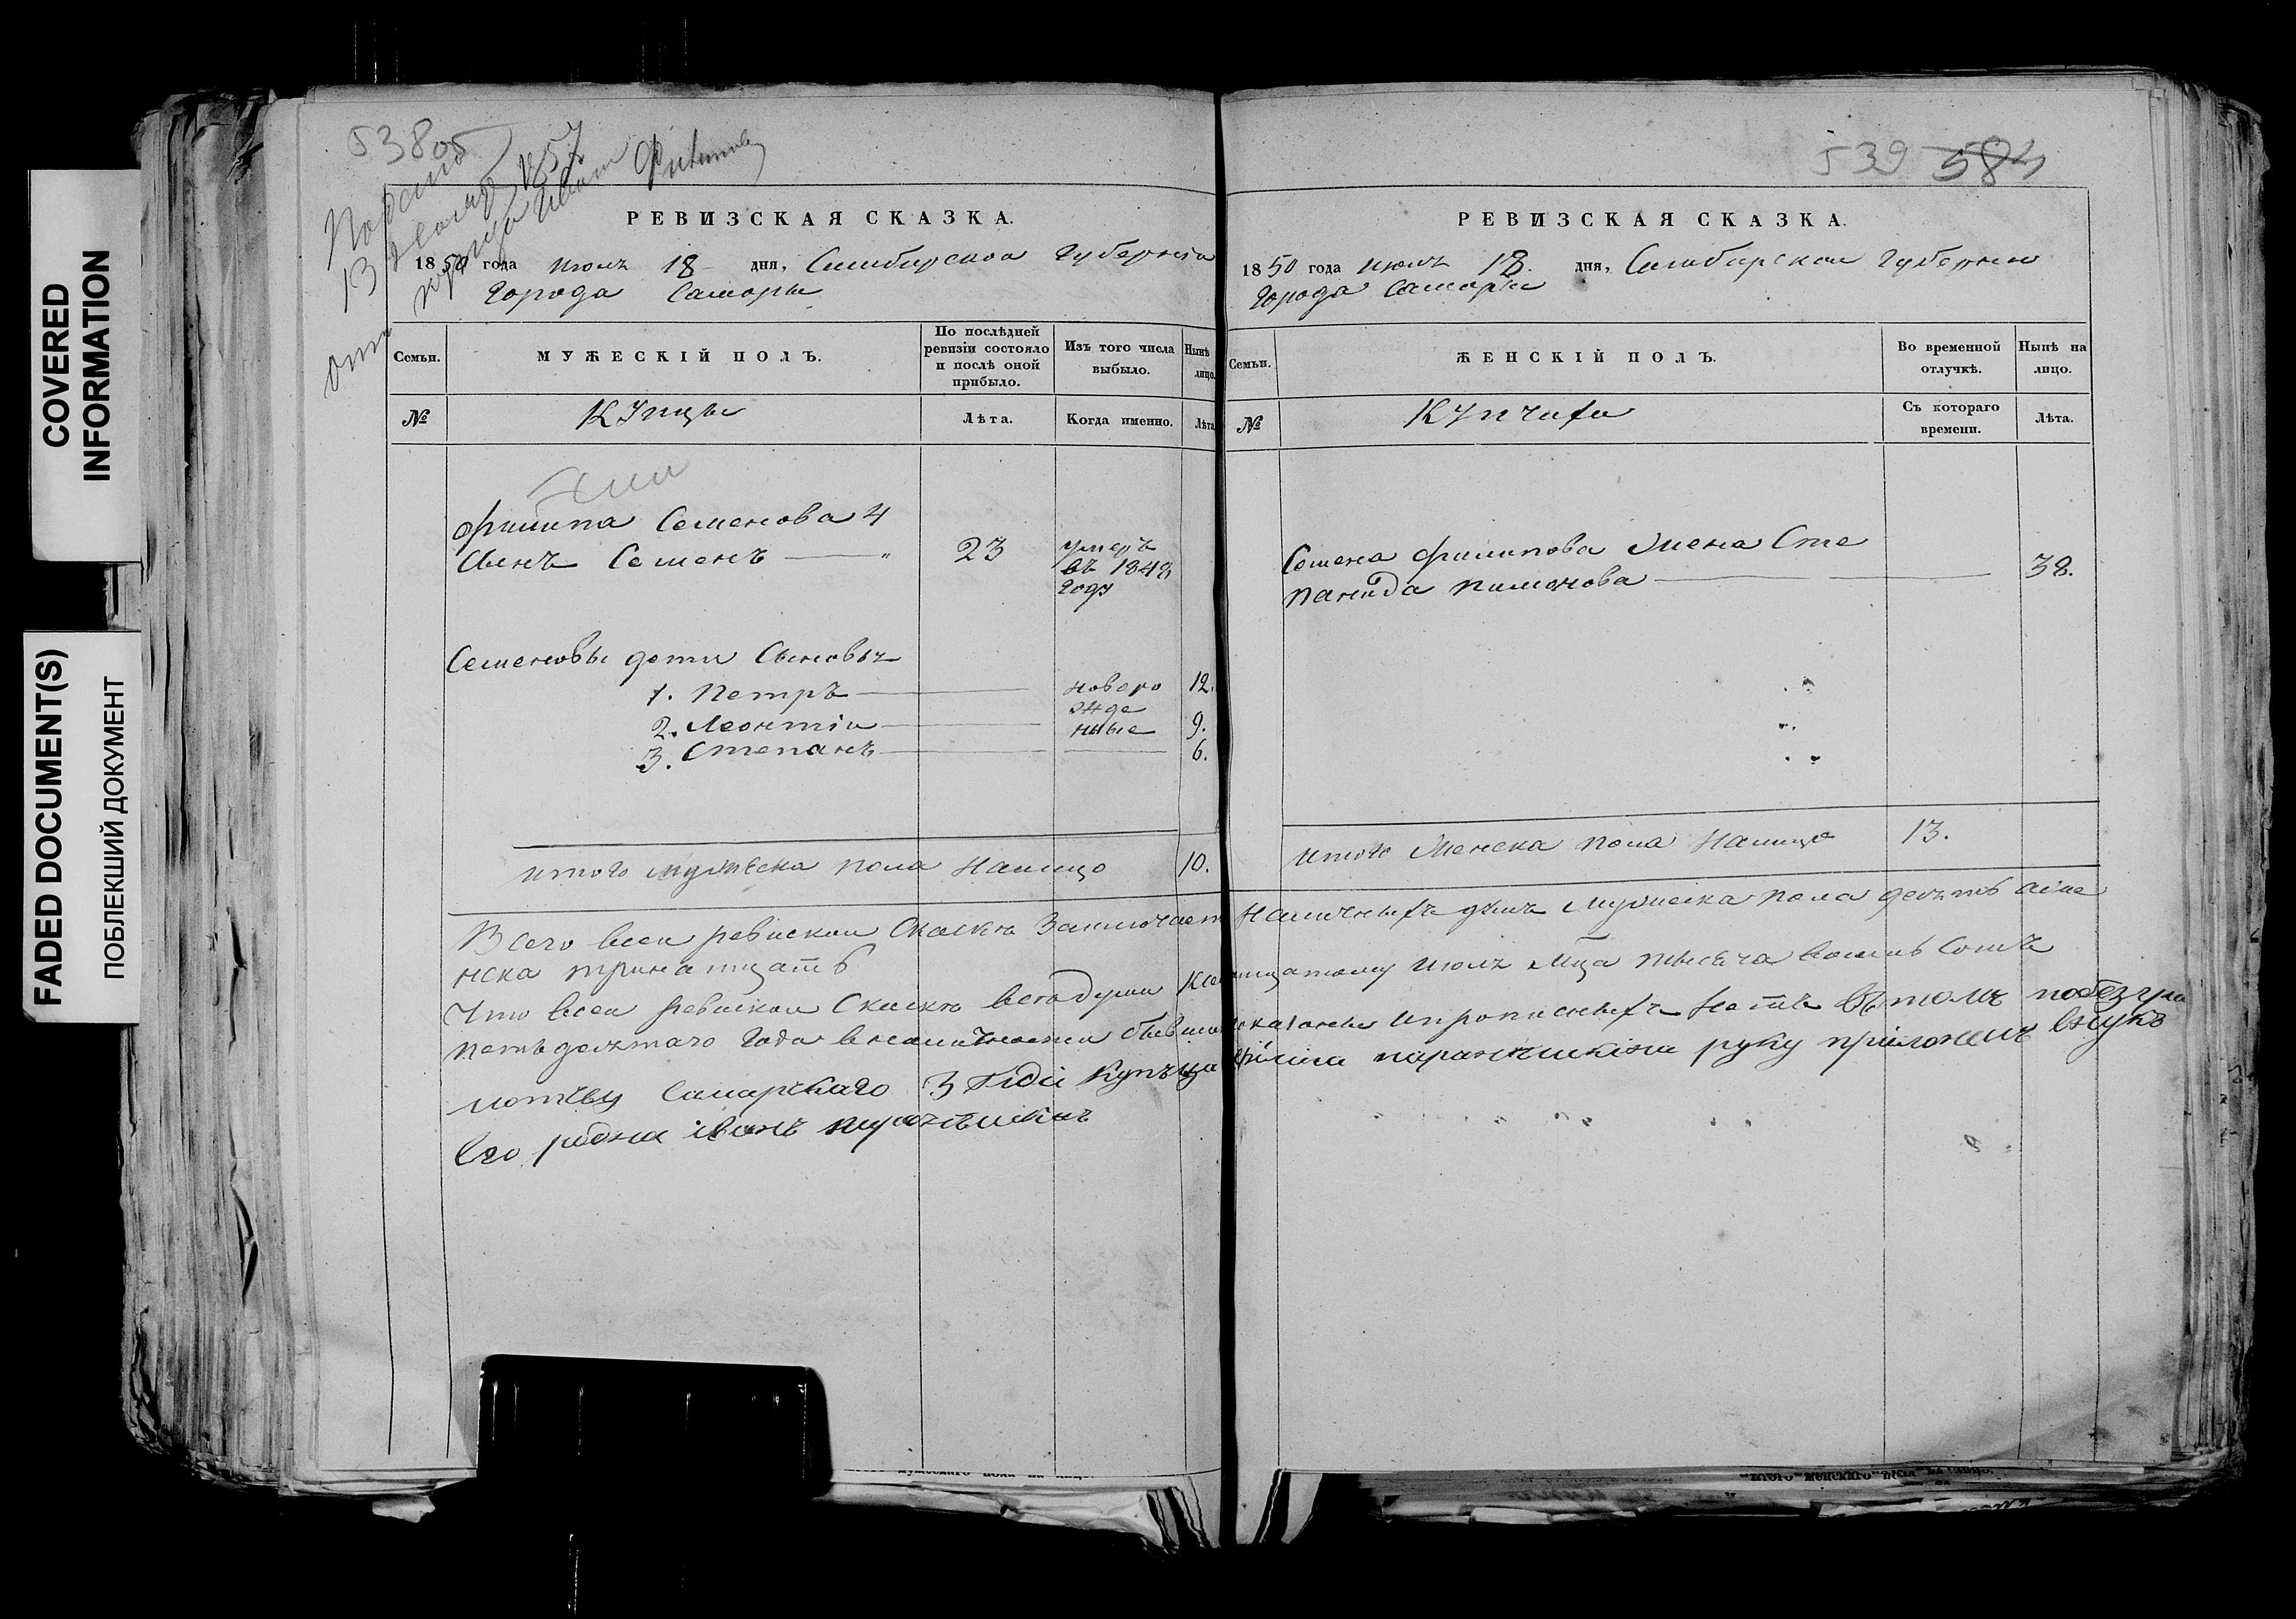 COVERED
INFORMATION
FADED DOCUMENT(S)
ПОБЛЕКШИЙ ДОКУМЕНТ
538об
Подано
13
1857
отъ Иванъ
РЕВИЗСКАЯ СКАЗКА.
1850 года июля 18 дня, Симбирской Губерніи
Города Самары
Семьи. МУЖЕСКІЙ ПОЛЪ. По послѣдней ревизіи состояло и послѣ оной прибыло. Изъ того числа выбыло. Нынѣ лицо.
№ Купцы Лѣта. Когда именно. Лѣта
Филипа Семенова 4
Сынъ Семенъ — " 23 умеръ
въ 1848
году
Семеновы дети Сыновья
1. Петръ — новоро 12.
2. Леонтіи — жде ные 9.
3. Степанъ — 6.
итого мужеска пола налицо 10.
539 584
РЕВИЗСКАЯ СКАЗКА.
1850 года июля 18. дня, Симбирской Губернии
Города Самары
Семьи. ЖЕНСКІЙ ПОЛЪ. Во временной отлучкѣ. Нынѣ на лицо.
№ Купчихи Съ котораго времени. Лѣта.
Семена Филипова жена Сте
панида пименова — 38.
итого женска пола налицо 13.
Всего всеи ревискои Скаскѣ Заключает наличныхъ душъ мужеска пола десять аже
нска тринатцать
Что всеи ревискои Скаскѣ вседушии июля мца тысяча восемь Сотъ
петьдесятаго года в наличности бывши показаны ипрописныхъ нетъ въ томъ
Самарскаго 3 Гиді купъца Филипа руку приложилъ внукъ
Его родной іванъ